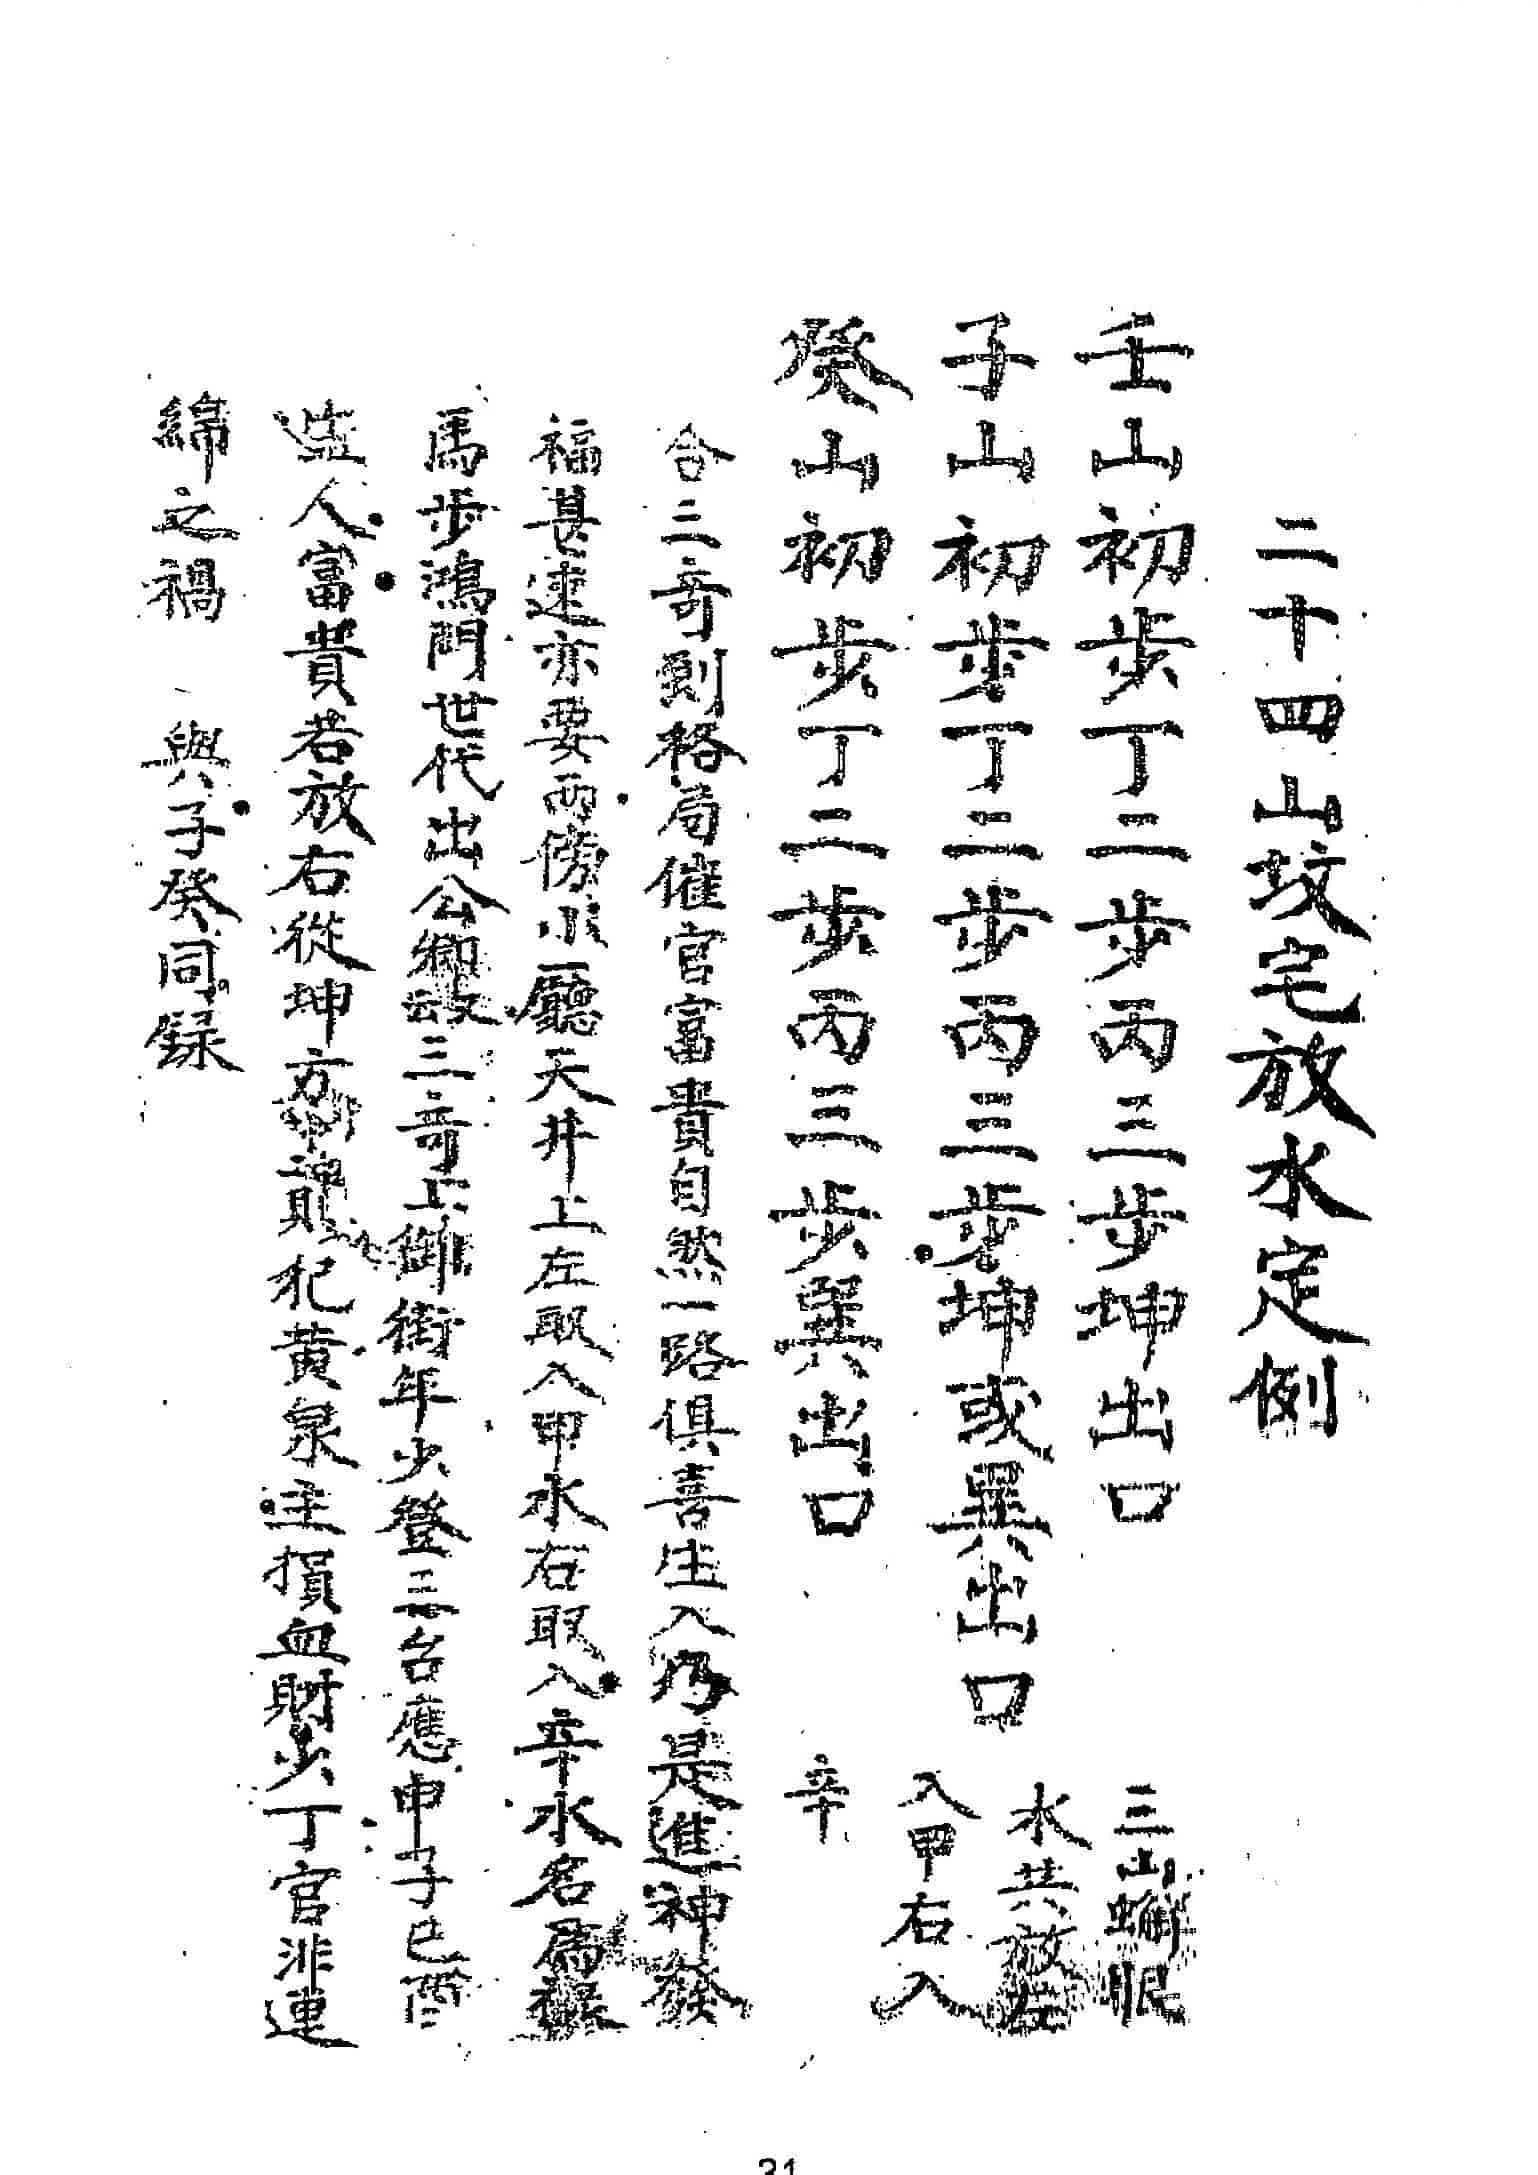 二十四山坟宅放水定例
壬山初步丁二步丙三步坤出口
三山蝋眼
水共放左
子山初步丁二步丙三步坤或巽出口
入甲右入
癸山初步丁二步丙三步巽出口
辛
合三奇到格局催官富貴自然一路俱喜生入乃是進神發
福甚速亦要两傍小廳天井上左取入甲水右取入辛水名為祿
馬步鴻門世代出公卿故三奇上御街年少登三台應申子巳酉
丑人富貴若放右從坤方 則犯黄泉主損血財少丁官非連
綿之禍 與子癸同録
31